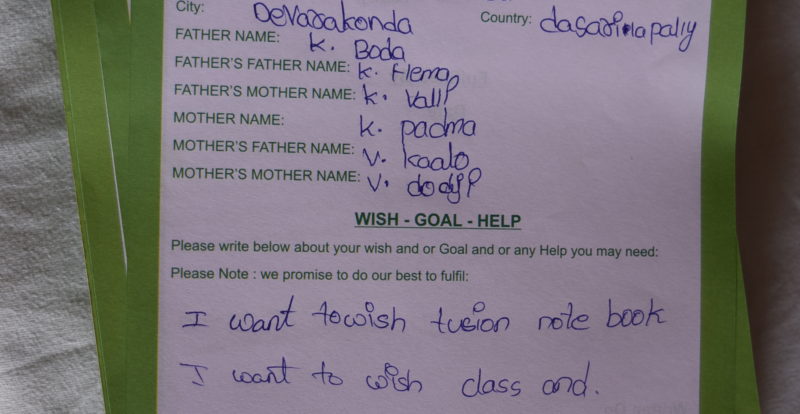 City: Devarakonda Country: dasarinapally
FATHER NAME: K. Boda
FATHER'S FATHER NAME: K. Hema
FATHER'S MOTHER NAME: K. Valli
MOTHER NAME: K. padma
MOTHER'S FATHER NAME: V. kaalo
MOTHER'S MOTHER NAME: V.
WISH - GOAL - HELP
Please write below about your wish and or Goal and or any Help you may need:
Please Note : we promise to do our best to fulfil:
I want towish tusion note book
I want to wish class and.